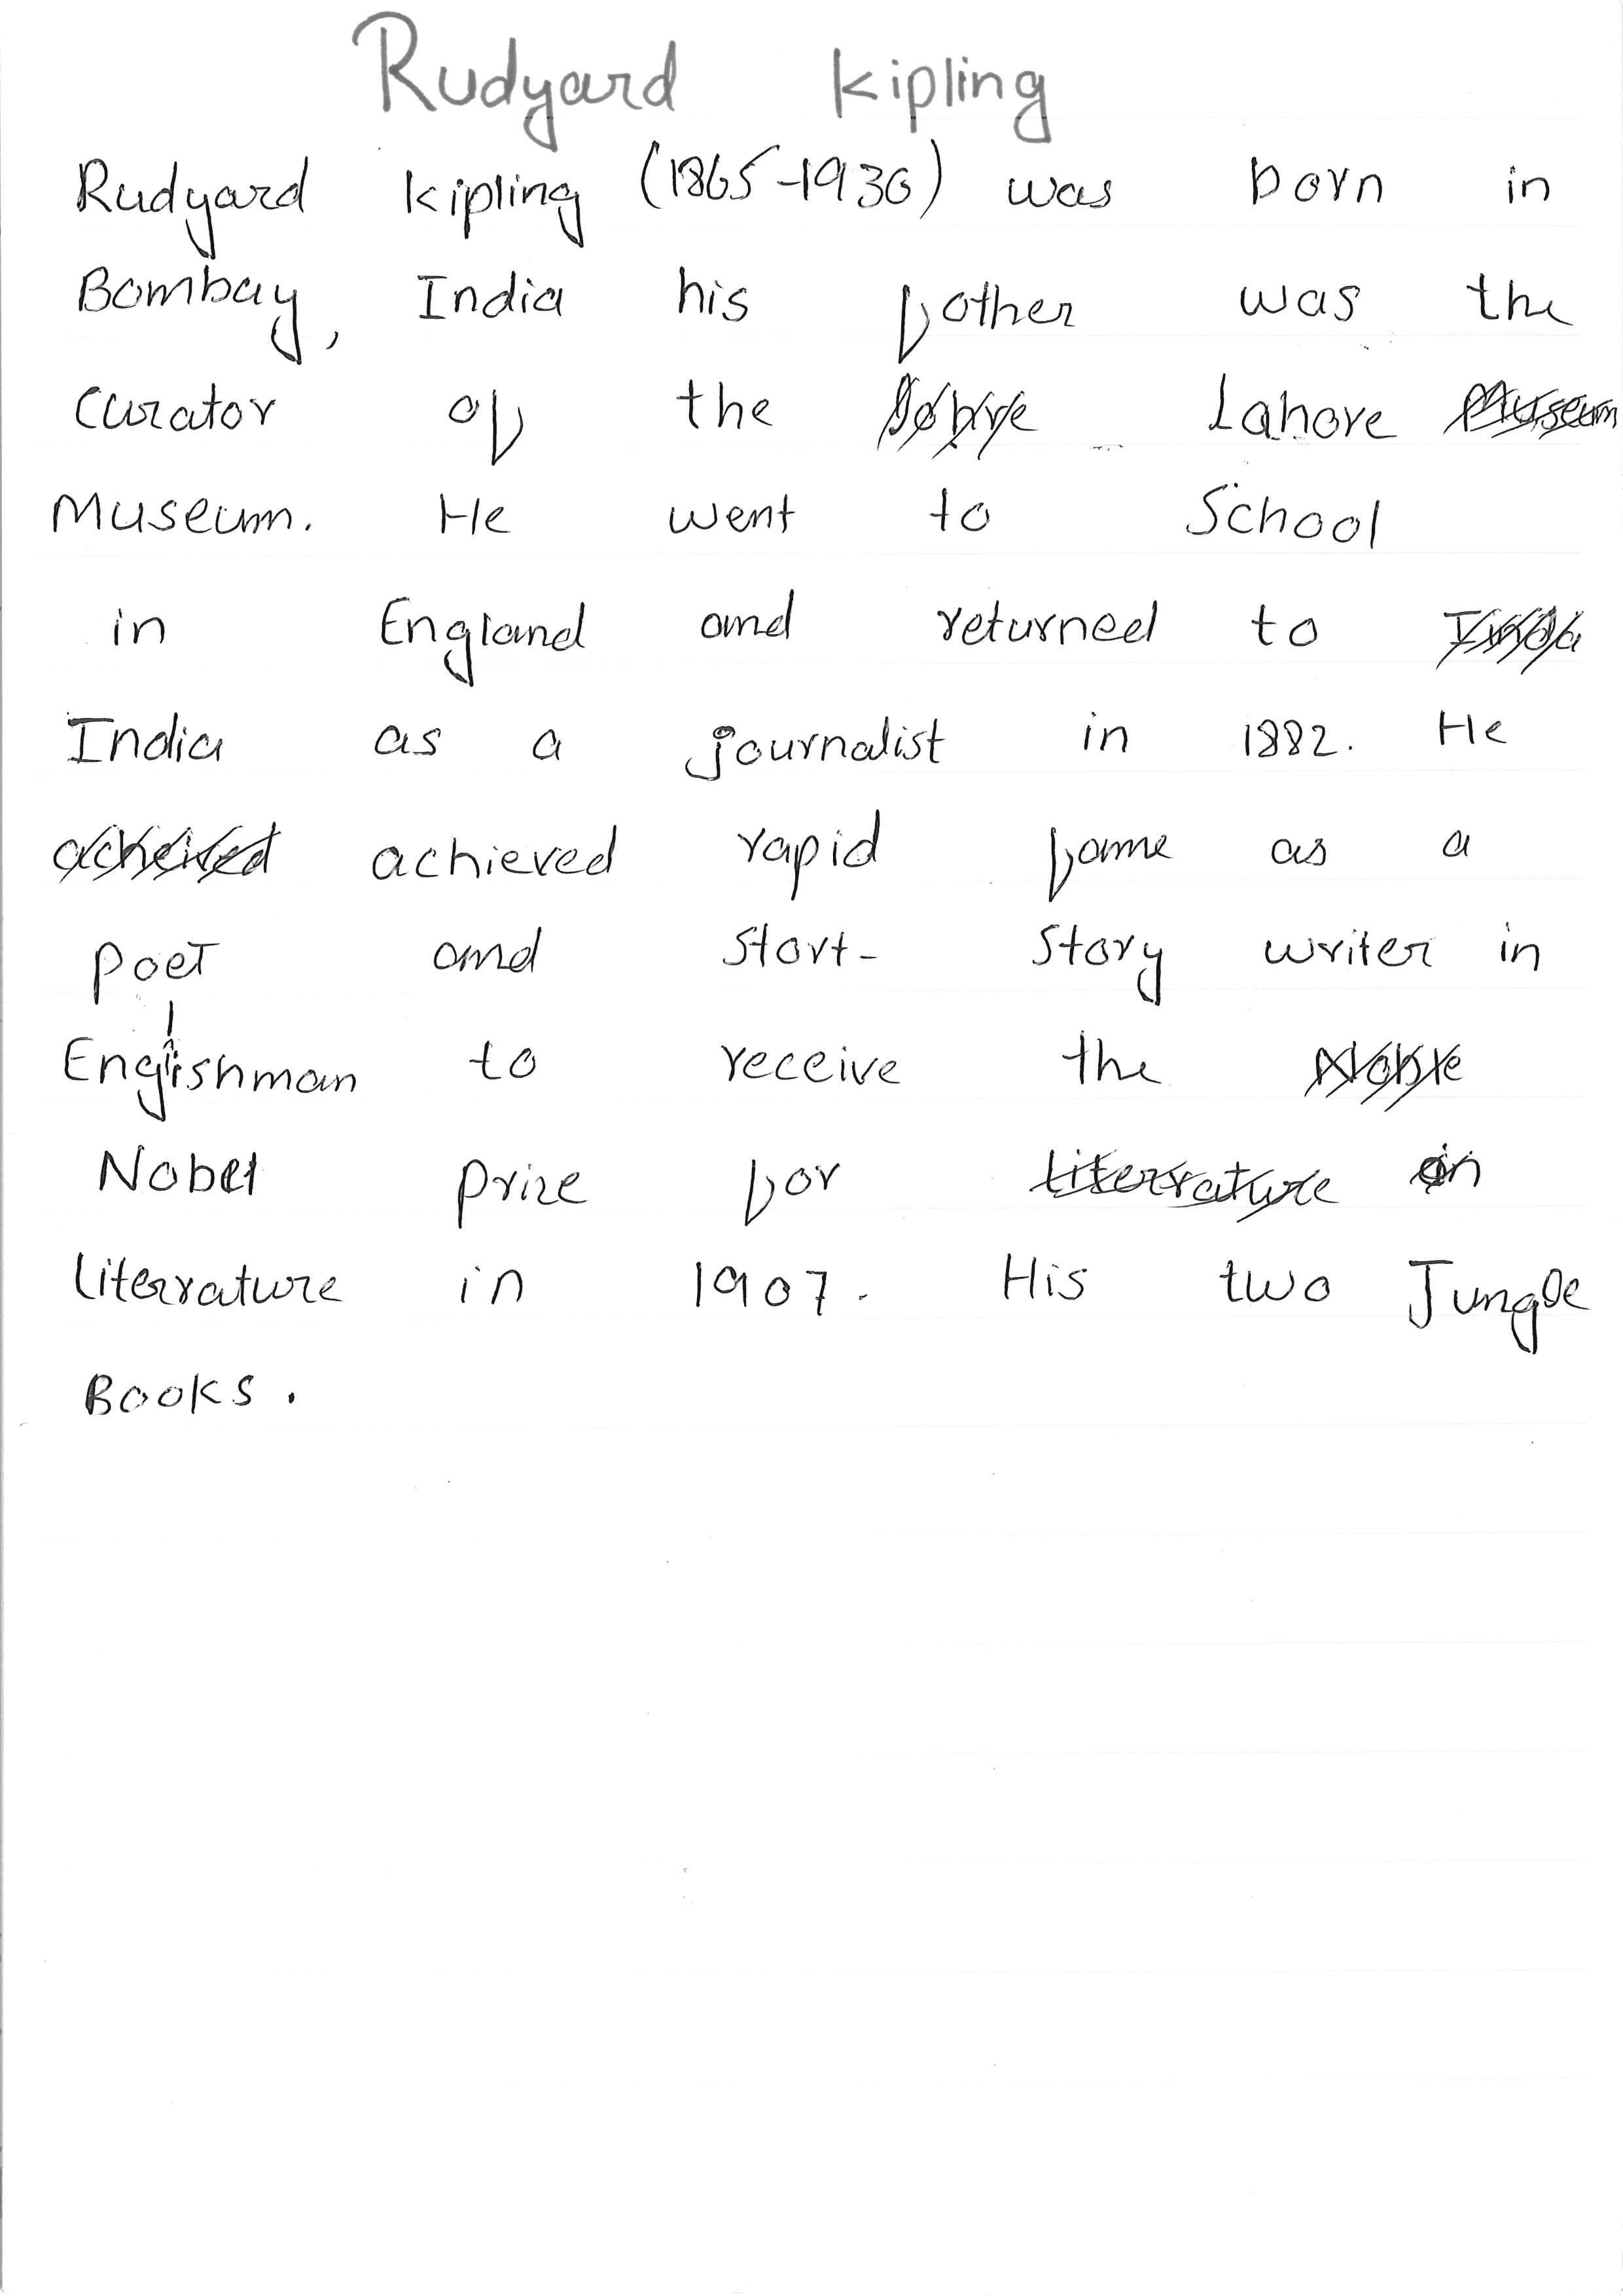 Rudyard kipling
Rudyard kipling (1865-1936) was born in
Bombay, India his father was the
curator of the Lahore Museum
Museum. He went to School
in England and returned to India
India as a journalist in 1882. He
acheived achieved rapid fame as a
poet and stort- story writer in
Englishman to receive the Noble
Nobel prize for literature in
literature in 1907. His two Jungle
Books.